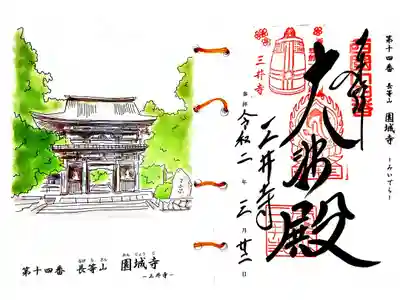 第十四番 長等山 園城寺
―みいでら―
奉拝
大悲殿
三井寺
令和二年三月廿二日
三井寺
第十四番 長等山 園城寺
なが ら さん おん じょう じ
―三井寺―